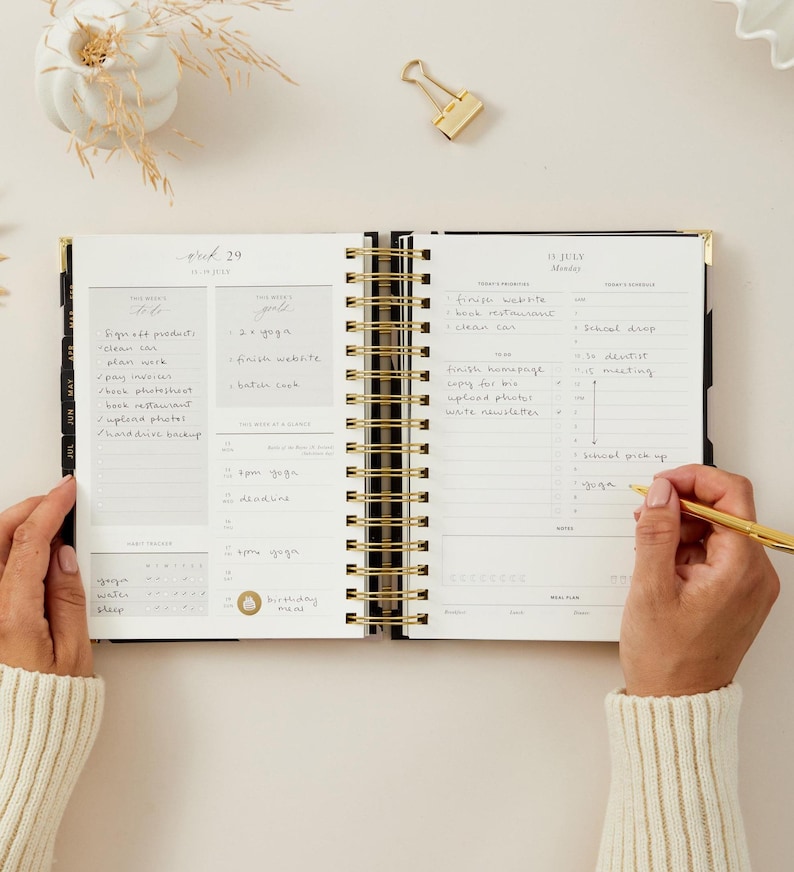 week 29
13 - 19 JULY
THIS WEEK'S
to do
sign off products
✓ clean car
plan work
✓ pay invoices
✓ book photoshoot
book restaurant
✓ upload photos
✓ harddrive backup
HABIT TRACKER
M T W T F S S
yoga
water
sleep
THIS WEEK'S
goals
1. 2 x yoga
2. finish website
3. batch cook
THIS WEEK AT A GLANCE
13
MON
Battle of the Boyne (N. Ireland)
14
TUE
7pm yoga
15
WED
deadline
16
THU
17
FRI
7pm yoga
18
SAT
19
SUN
birthday
meal
FEB
MAR
APR
MAY
JUN
JUL
13 JULY
Monday
TODAY'S PRIORITIES
1. finish website
2. book restaurant
3. clean car
TO DO
finish homepage
copy for bio ✓
upload photos
write newsletter ✓
TODAY'S SCHEDULE
6AM
7
8 school drop
9
10 .30 dentist
11 .15 meeting
12
1PM
2
3
4
5 school pick up
6
7 yoga
8
9
NOTES
MEAL PLAN
Breakfast:
Lunch:
Dinner: